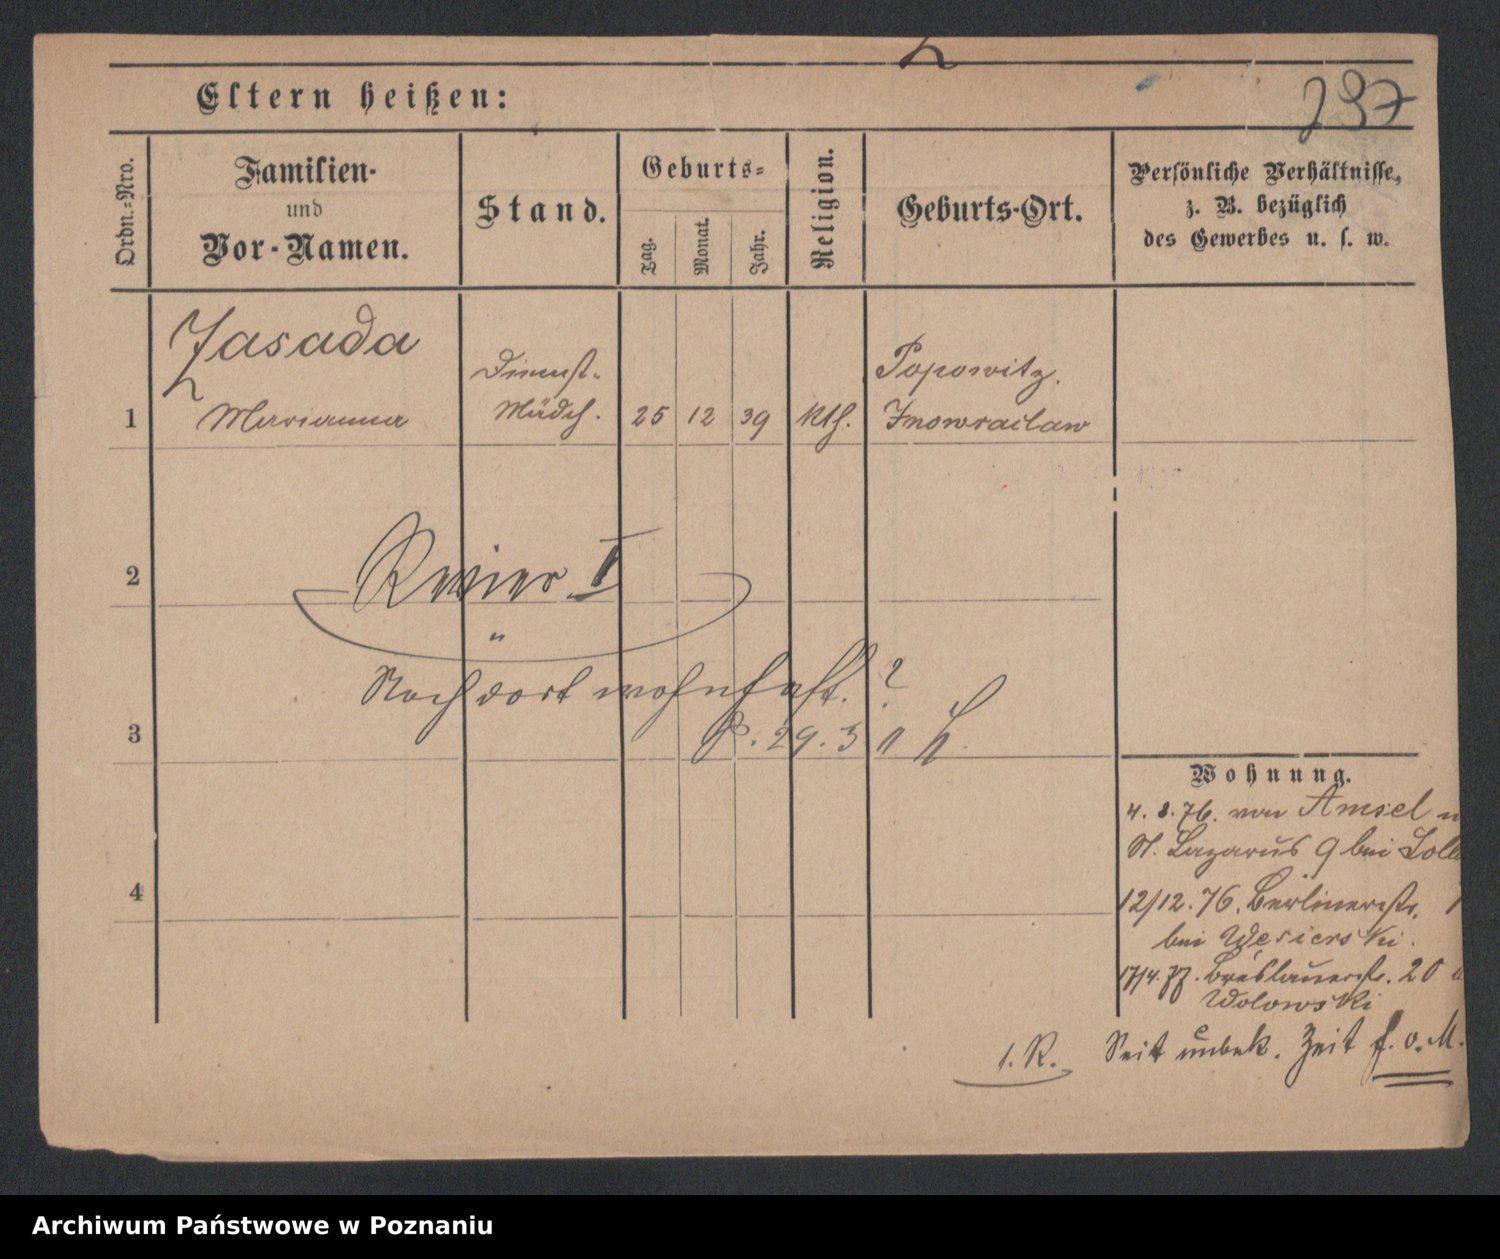 237
Eltern heißen:
Ordn.-Nro.
Familien-
und
Vor-Namen.
Stand.
Geburts-
Tag.
Monat.
Jahr.
Religion.
Geburts-Ort.
Persönliche Verhältnisse,
z. B. bezüglich
des Gewerbes u. s. w.
Jasada
Dienst-
Popowitz.
1 Marianna Mädch. 25 12 39 Kth. Inowraclaw
2 Revier I
"
Noch dort wohnhaft. ?
3 P. 29. 3
Wohnung.
4. 8. 76. von Amsel
St. Lazarus 9 bei
4
12/12. 76. Berlinerstr.
bei Wesierski.
17/4. 77. Breslauerstr. 20
Wolowski
1. R. Seit unbek. Zeit f. o. M.
Archiwum Państwowe w Poznaniu